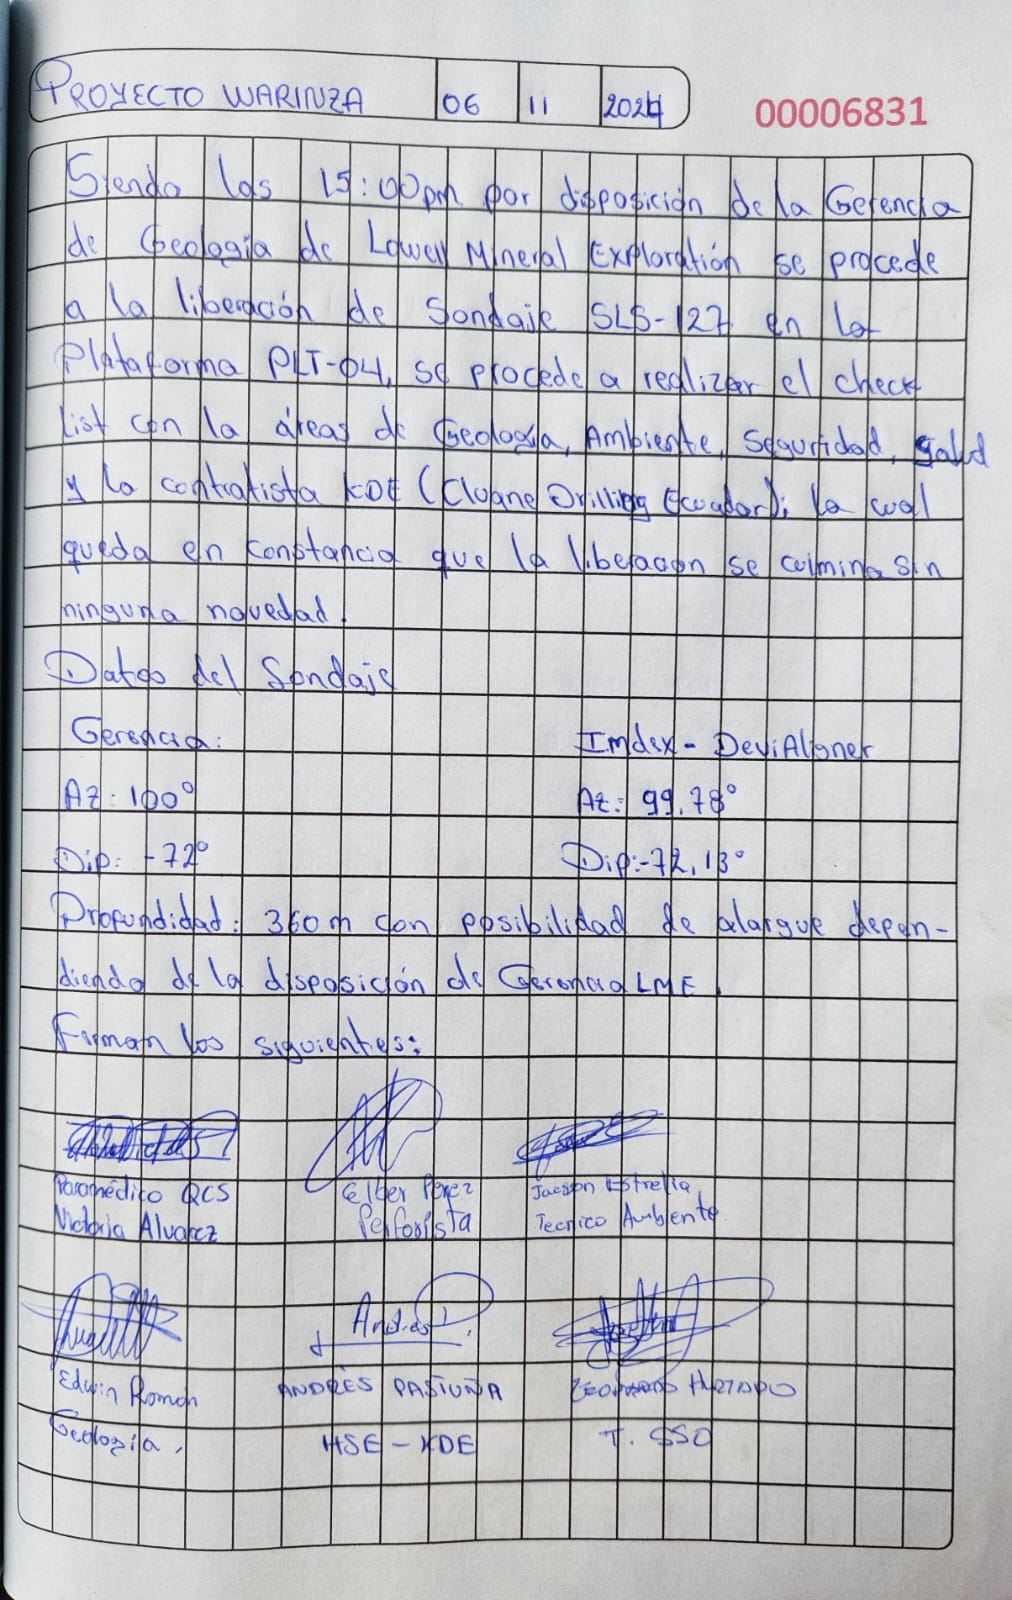 PROYECTO WARINZA 06 11 2024 00006831
Siendo las 15:00pm por disposición de la Gerencia
de Geología de Lowell Mineral Exploratión se procede
a la liberación de Sondaje SLS-127 en la
Plataforma PLT-04, se procede a realizar el check
list con la áreas de Geología, Ambiente, Seguridad, salud
y la contratista KDE (Cluane Drilling Ecuador); la cual
queda en constancia que la liberación se culmina sin
ninguna novedad.
Datos del Sondaje
Gerencia: Imdex - DeviAligner
Az: 100° Az: 99.78°
Dip: -72° Dip:-72,13°
Profundidad: 360m con posibilidad de alargue depen-
diendo de la disposición de Gerencia LME.
Firman los siguientes:
Paramédico QCS Elber Perez Jacson Estrella
Victoria Alvarez Perforista Tecnico Ambiente
Andrés P.
Edwin Roman ANDRÉS PASTUÑA LEONARDO HURTADO
Geología. HSE - KDE T. SSO